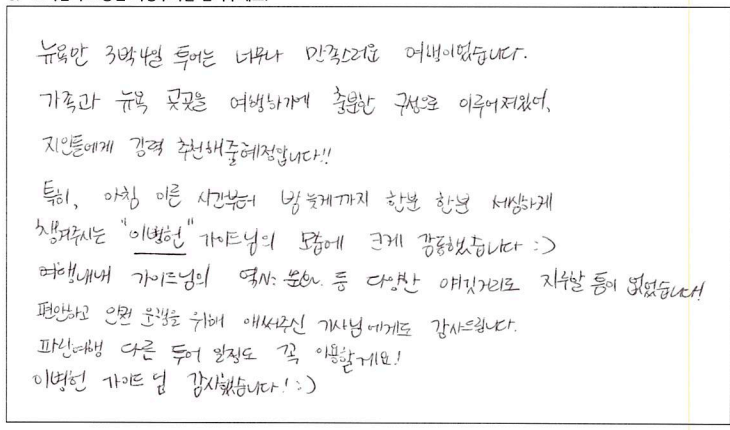 뉴욕만 3박4일 투어는 너무나 만족스러운 여행이었습니다.
가족과 뉴욕 곳곳을 여행하기에 충분한 구성으로 이루어져있어,
지인들에게 강력 추천해줄예정입니다!!
특히, 아침 이른 시간부터 밤 늦게까지 한분 한분 세심하게
챙겨주시는 "이병헌" 가이드님의 모습에 크게 감동했습니다 :)
여행내내 가이드님의 역사: 문화 등 다양한 얘깃거리로 지루할 틈이 없었습니다!
편안하고 안전 운행을 위해 애써주신 기사님에게도 감사드립니다.
파신여행 다른 투어 일정도 꼭 이용할게요!
이병헌 가이드님 감사했습니다! :)